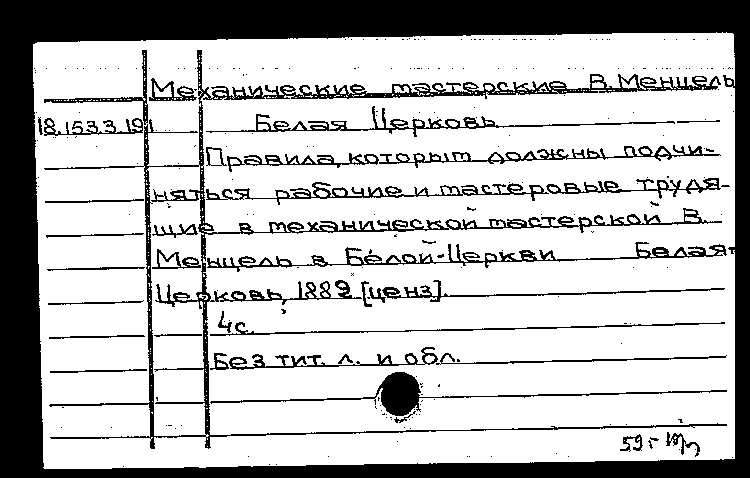 Механические мастерские В. Менцель
18.153.3.191 Белая Церковь
Правила, которым должны подчи-
няться рабочие и мастеровые трудя-
щие в механической мастерской В.
Менцель в Белой-Церкви Белая-
Церковь, 1889 [ценз].
4с.
Без тит. л. и обл.
59-